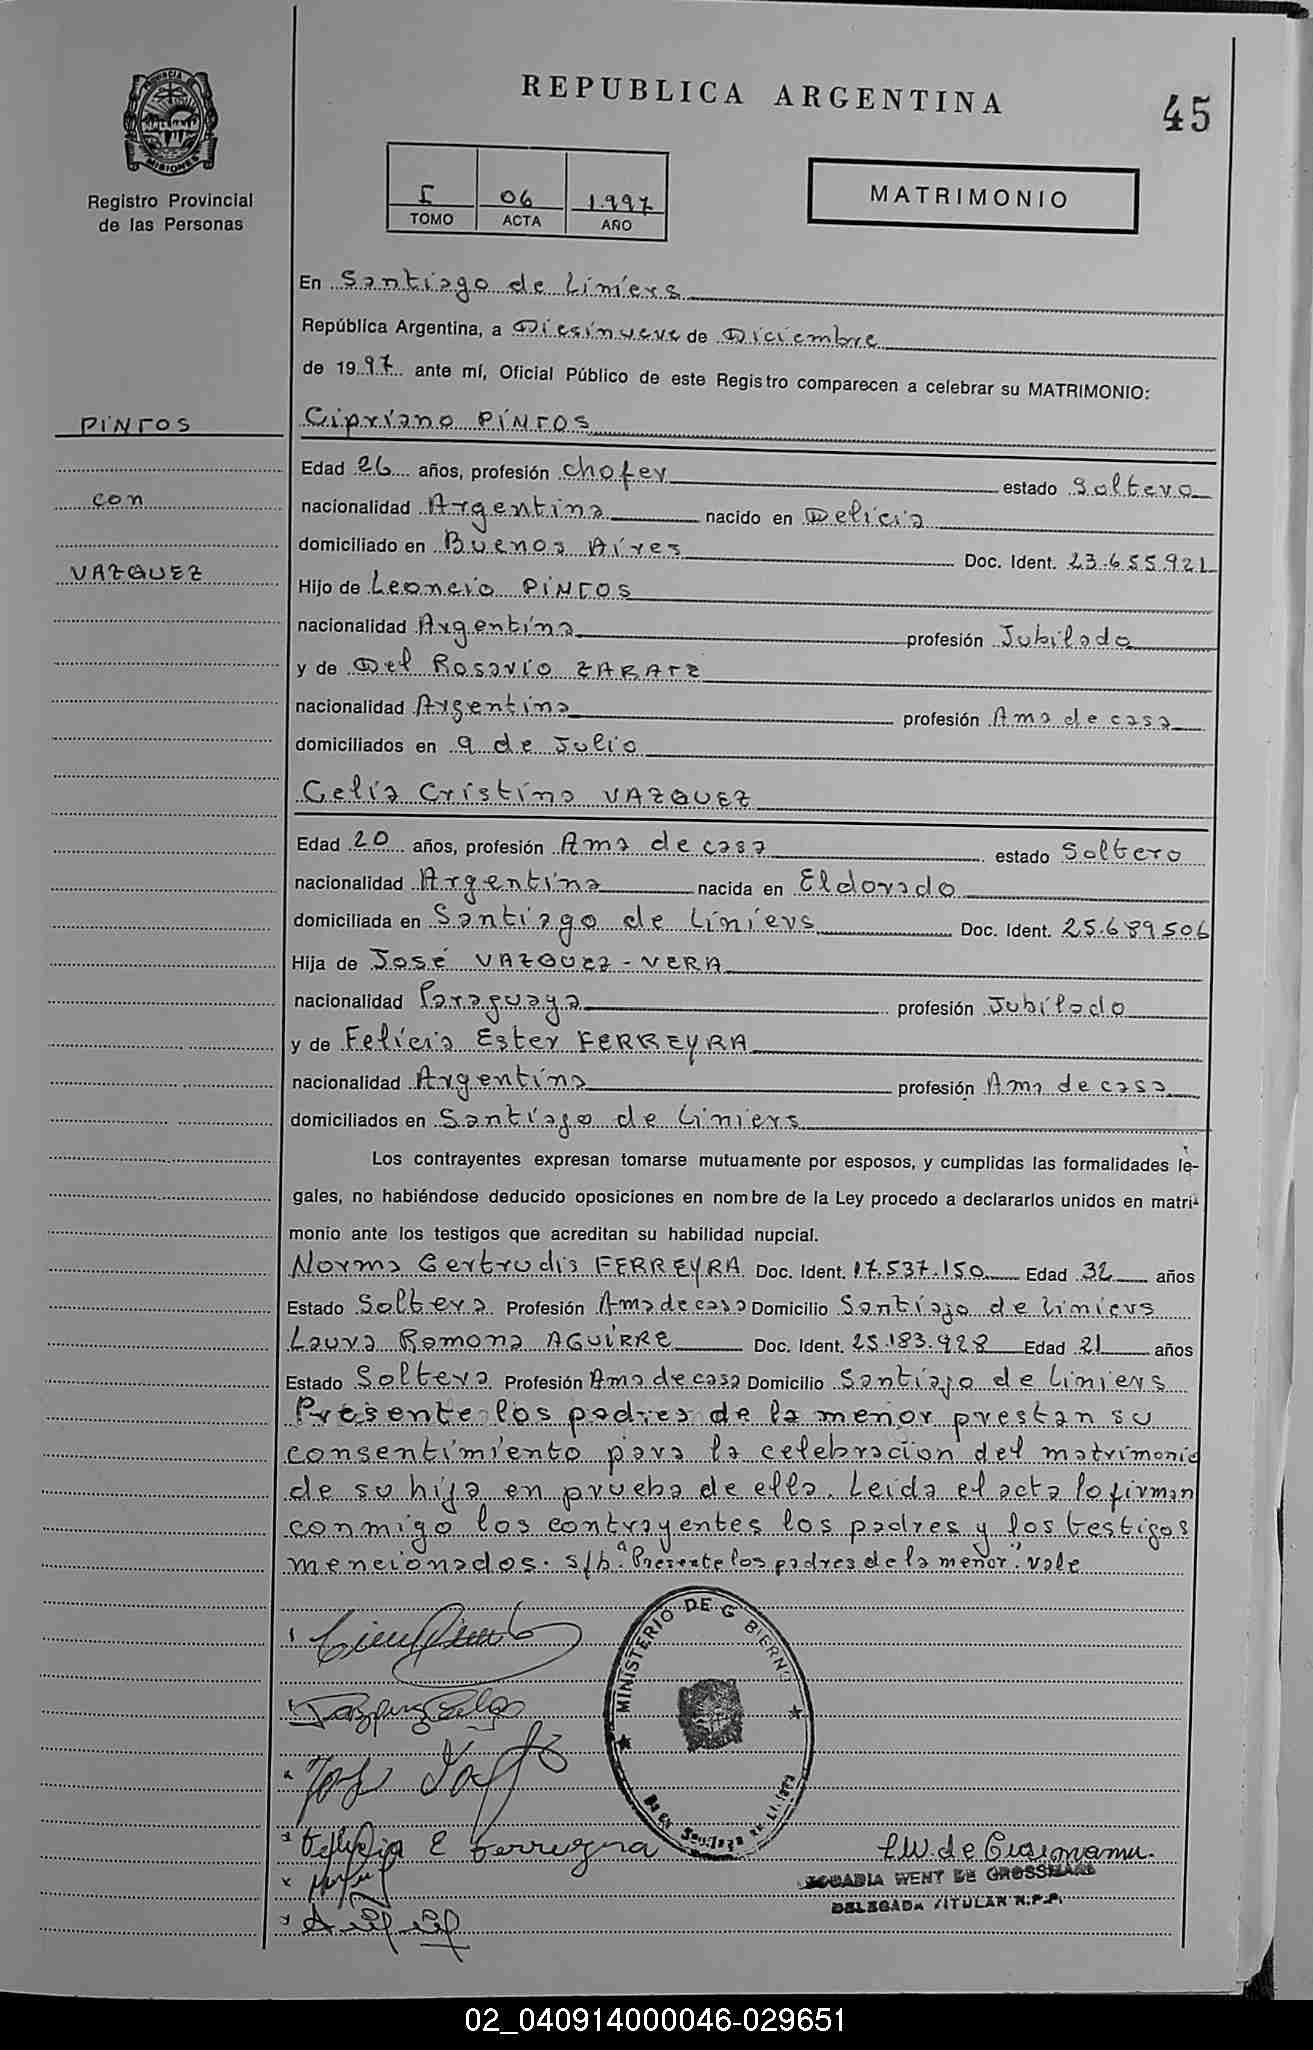 REPUBLICA ARGENTINA
45
PROVINCIA DE
MISIONES
Registro Provincial
de las Personas
I 06 1.997
TOMO ACTA AÑO
MATRIMONIO
En Santiago de Liniers
República Argentina, a Diesinueve de Diciembre
de 1997 ante mí, Oficial Público de este Registro comparecen a celebrar su MATRIMONIO:
PINTOS
con
VAZQUEZ
Cipriano PINTOS
Edad 26 años, profesión Chofer estado Soltero
nacionalidad Argentina nacido en Delicia
domiciliado en Buenos Aires Doc. Ident. 23.655.921
Hijo de Leoncio PINTOS
nacionalidad Argentina profesión Jubilado
y de Del Rosario ZARATE
nacionalidad Argentina profesión Ama de casa
domiciliados en 9 de Julio
Celia Cristina VAZQUEZ
Edad 20 años, profesión Ama de casa estado Soltero
nacionalidad Argentina nacida en Eldorado
domiciliada en Santiago de Liniers Doc. Ident. 25.689.506
Hija de José VAZQUEZ-VERA
nacionalidad Paraguaya profesión Jubilado
y de Felicia Ester FERREYRA
nacionalidad Argentina profesión Ama de casa
domiciliados en Santiago de Liniers
Los contrayentes expresan tomarse mutuamente por esposos, y cumplidas las formalidades le-
gales, no habiéndose deducido oposiciones en nombre de la Ley procedo a declararlos unidos en matri-
monio ante los testigos que acreditan su habilidad nupcial.
Norma Gertrudis FERREYRA Doc. Ident. 17.537.150 Edad 32 años
Estado Soltera Profesión Ama de casa Domicilio Santiago de Liniers
Laura Ramona AGUIRRE Doc. Ident. 25.183.928 Edad 21 años
Estado Soltera Profesión Ama de casa Domicilio Santiago de Liniers
Presente los padres de la menor prestan su
consentimiento para la celebracion del matrimonio
de su hija en prueba de ella. Leida el acta lo firman
conmigo los contrayentes los padres y los testigos
mencionados. s/b "Presente los padres de la menor" vale
MINISTERIO DE G BIERNO
Vazquez Celia
E Ferreyra
WENT DE GROSSMANN
DELEGADA TITULAR R.P.P.
02_040914000046-029651